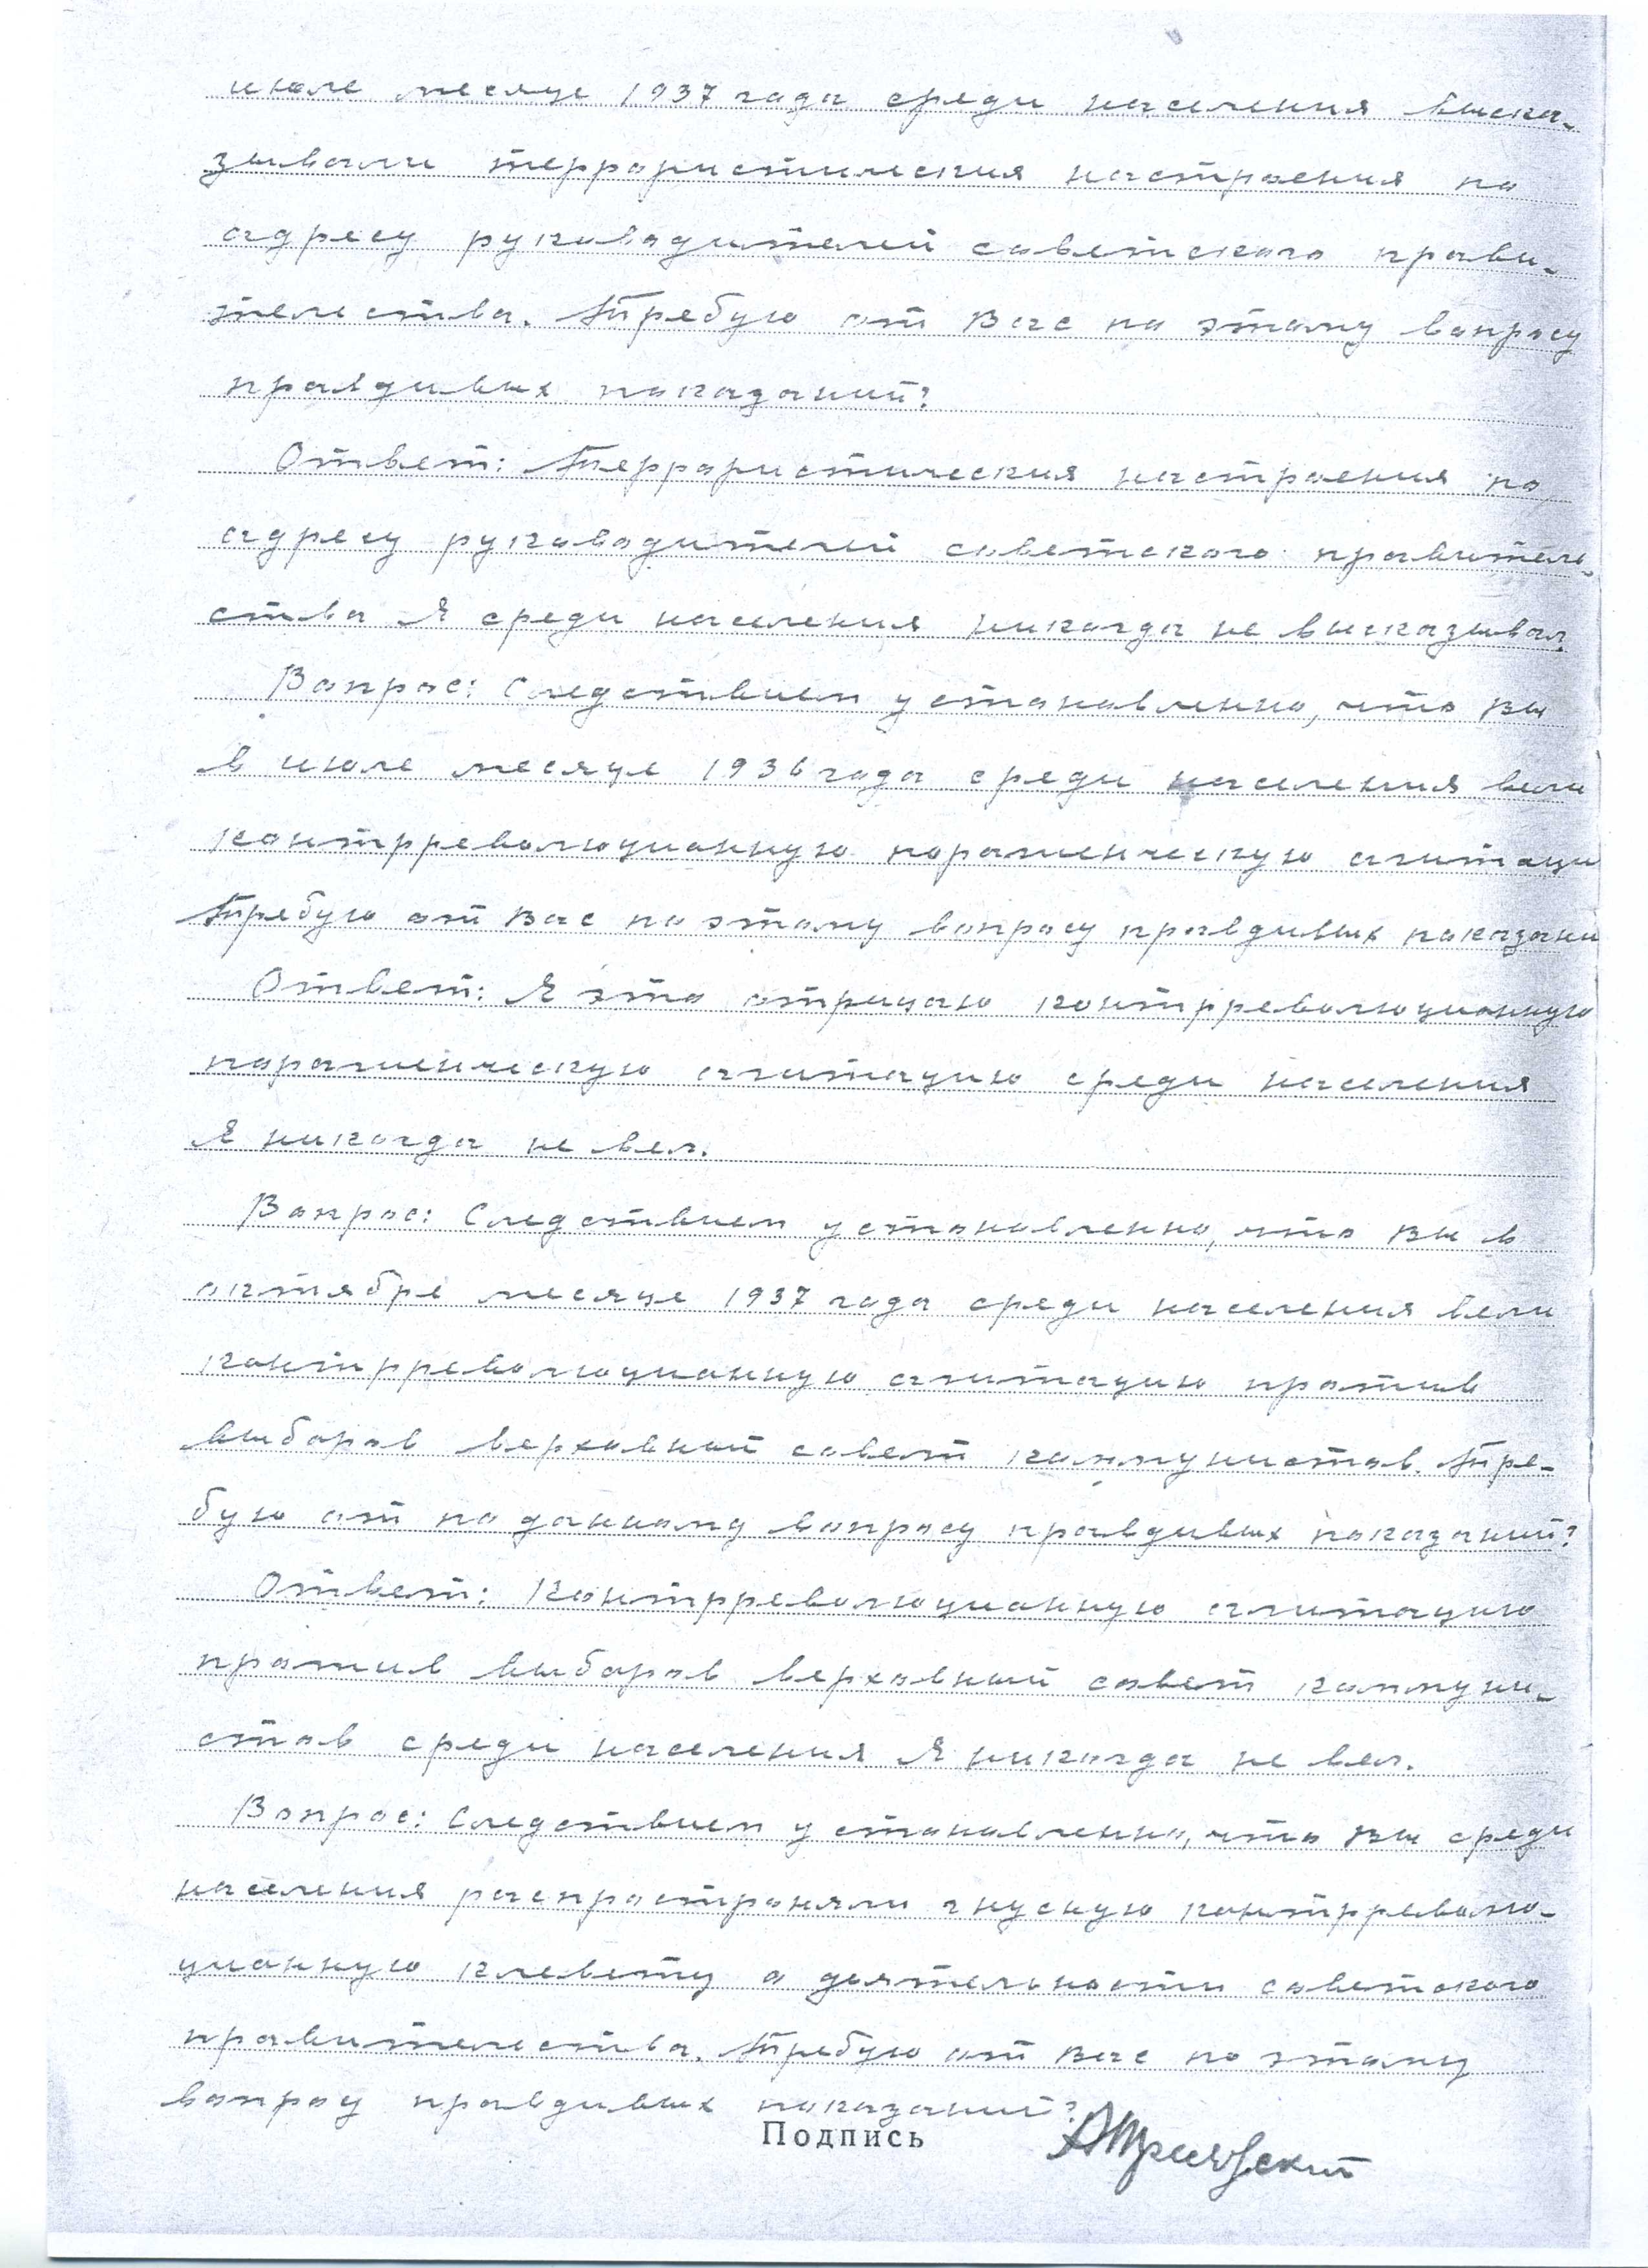 июле месяце 1937 года среди населения выска-
зывали террористические настроения по
адресу руководителей советского прави-
тельства. Требую от Вас по этому вопросу
правдивых показаний?
Ответ: Террористические настроения по
адресу руководителей советского правитель-
ства Я среди населения никогда не высказывал.
Вопрос: Следствием установленно, что Вы
в июле месяце 1936 года среди населения вели
контрреволюционную пораженческую агитаци
Требую от Вас по этому вопросу правдивых показани
Ответ: Я это отрицаю контрреволюционную
пораженческую агитацию среди населения
Я никогда не вел.
Вопрос: Следствием установленно, что Вы в
октябре месяце 1937 года среди населения вели
контрреволюционную агитацию против
выборов верховный совет коммунистов. Тре-
бую от по данному вопросу правдивых показаний?
Ответ: Контрреволюционную агитацию
против выборов верховный совет коммуни-
стов среди населения Я никогда не вел.
Вопрос: Следствием установленно, что Вы среди
населения распространяли гнусную контрреволю-
ционную клевету о деятельности советского
правительства. Требую от Вас по этому
вопросу правдивых показаний?
Подпись